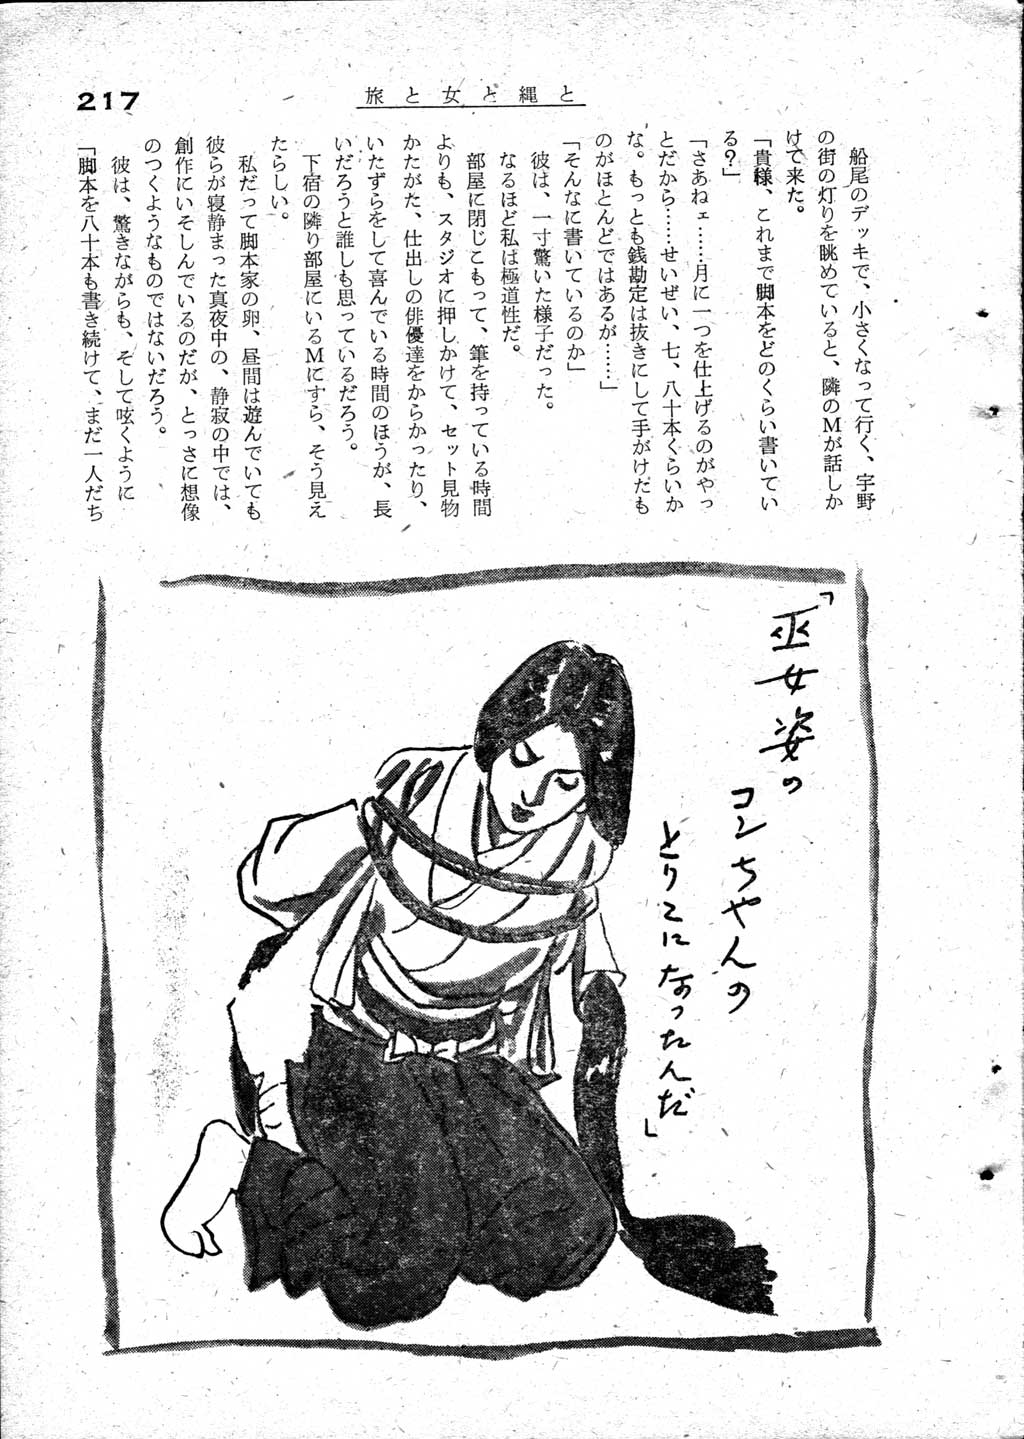 217
旅と女と縄と
船尾のデッキで、小さくなって行く、宇野
の街の灯りを眺めていると、隣のMが話しか
けて来た。
「貴様、これまで脚本をどのくらい書いてい
る？」
「さあねェ……月に一つを仕上げるのがやっ
とだから……せいぜい、七、八十本くらいか
な。もっとも銭勘定は抜きにして手がけだも
のがほとんどではあるが……」
「そんなに書いているのか」
彼は、一寸驚いた様子だった。
なるほど私は極道性だ。
部屋に閉じこもって、筆を持っている時間
よりも、スタジオに押しかけて、セット見物
かたがた、仕出しの俳優達をからかったり、
いたずらをして喜んでいる時間のほうが、長
いだろうと誰しも思っているだろう。
下宿の隣り部屋にいるMにすら、そう見え
たらしい。
私だって脚本家の卵、昼間は遊んでいても
彼らが寝静まった真夜中の、静寂の中では、
創作にいそしんでいるのだが、とっさに想像
のつくようなものではないだろう。
彼は、驚きながらも、そして呟くように
「脚本を八十本も書き続けて、まだ一人だち
「巫女姿の
コンちゃんの
とりこになったんだ」